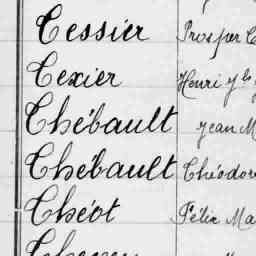 Tessier Prosper
Texier Henri
Thébault Jean M
Thébault Théodore
Théot Félix Ma